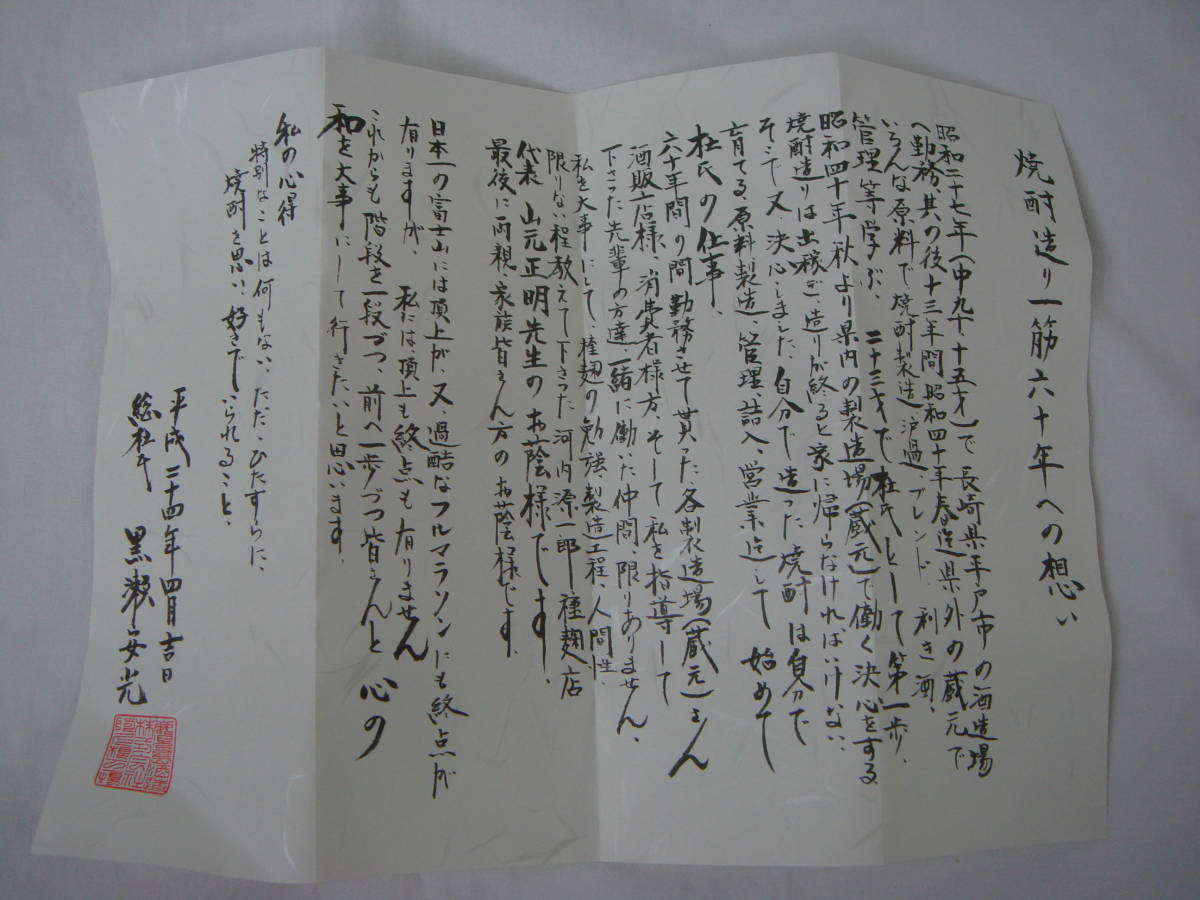 焼酎造り一筋六十年への想い
昭和二十七年(中九十十五才)で長崎県平戸市の酒造場
へ勤務其の後十三年間昭和四十年春迄県外の蔵元で
いろんな原料で焼酎製造、沪過、ブレンド、利き酒、
管理等学ぶ、二十三才で杜氏として第一歩、
昭和四十年秋より県内の製造場(蔵元)で働く決心をする
焼酎造りは出稼ぎ、造りが終ると家に帰らなければいけない、
そこで又、決心しました、自分で造った焼酎は自分で
育てる、原料製造、管理、詰入、営業迄して始めて
杜氏の仕事、
六十年間の間勤務させて貰った、各製造場(蔵元)さん
酒販店様、消費者様方、そして私を指導して
下さった先輩の方達、一緒に働いた仲間、限りありません、
私を大事にして、種麹の勉強、製造工程、人間性、
限りない程教えて下さった河内源一郎種麹店
代表山元正明先生のお蔭様です、
最後に両親、家族皆さん方のお蔭様です、
日本一の富士山には頂上が、又、過酷なフルマラソンにも終点が
有りますが、私には、頂上も終点も有りません
これからも階段を一段づつ、前へ一歩づつ皆さんと心の
和を大事にして行きたいと思います、
私の心得
特別なことは何もない、ただ、ひたすらに、
焼酎を思い、好きでいられること、
平成二十四年四月吉日
総杜氏 黒瀬安光